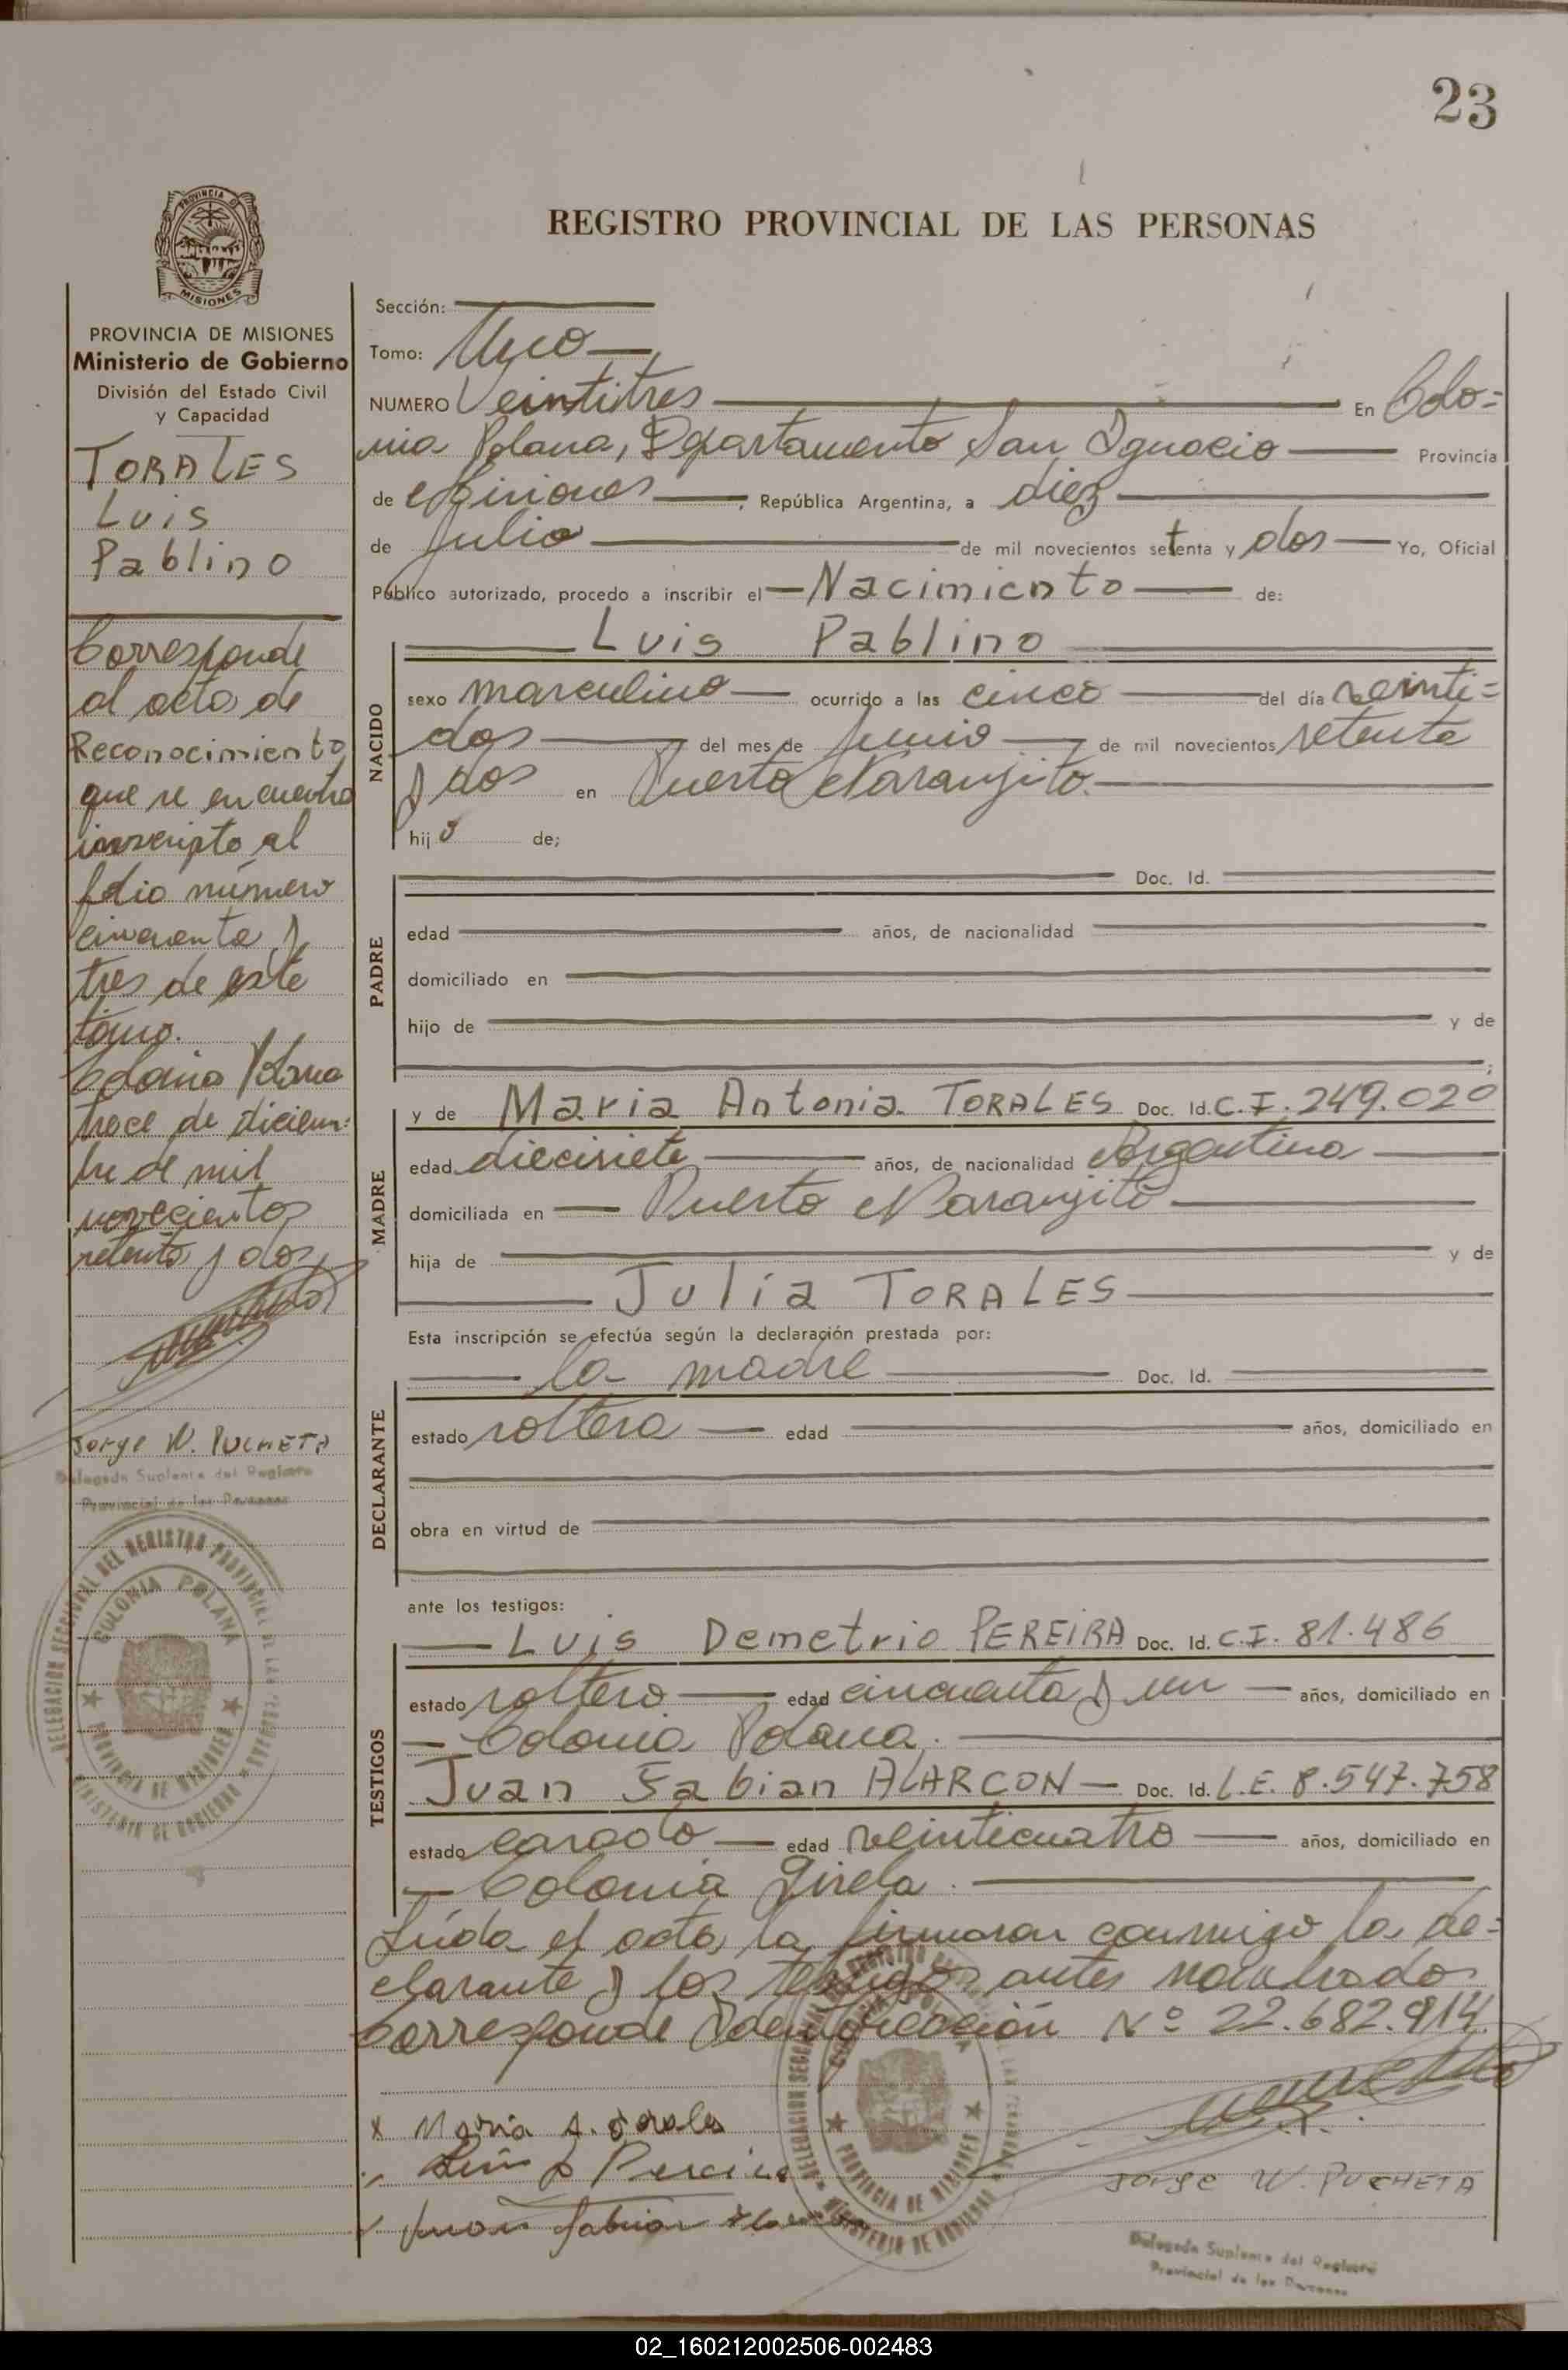 23
PROVINCIA DE
MISIONES
REGISTRO PROVINCIAL DE LAS PERSONAS
PROVINCIA DE MISIONES
Ministerio de Gobierno
División del Estado Civil
y Capacidad
TORALES
Luis
Pablino
Corresponde
al acta de
Reconocimiento
que se encuentra
inscripto al
folio número
cincuenta y
tres de este
tomo.
Colonia Polana
trece de diciem=
bre de mil
novecientos
setenta y dos
Jorge W. PUCHETA
Delegado Suplente del Registro
Provincial de las Personas
DELEGACION SECCIONAL DEL REGISTRO PROVINCIAL DE LAS PERSONAS
COLONIA POLANA
PROVINCIA DE MISIONES
MINISTERIO DE GOBIERNO
Sección:
Tomo: Uno
NUMERO Veintitres En Colo=
nia Polana, Departamento San Ignacio Provincia
de Misiones, República Argentina, a diez
de Julio de mil novecientos setenta y dos Yo, Oficial
Público autorizado, procedo a inscribir el Nacimiento de:
NACIDO
Luis Pablino
sexo masculino ocurrido a las cinco del día veinti=
dos del mes de Junio de mil novecientos setenta
y dos en Puerto Naranjito.
hijo de;
PADRE
Doc. Id.
edad años, de nacionalidad
domiciliado en
hijo de y de
;
MADRE
y de Maria Antonia TORALES Doc. Id. C.I. 249.020
edad diecisiete años, de nacionalidad Argentina
domiciliada en Puerto Naranjito
hija de y de
Julia TORALES
Esta inscripción se efectúa según la declaración prestada por:
DECLARANTE
la madre Doc. Id.
estado soltera edad años, domiciliado en
obra en virtud de
ante los testigos:
TESTIGOS
Luis Demetrio PEREIRA Doc. Id. C.I. 81.486
estado soltero edad cincuenta y un años, domiciliado en
Colonia Polana.
Juan Fabian ALARCON Doc. Id. L.E. 8.547.758
estado casado edad veinticuatro años, domiciliado en
Colonia Gisela.
Leída el acta, la firmaron conmigo la de=
clarante y los testigos antes nombrados
Corresponde Identificación Nº 22.682.914
DELEGACION SECCIONAL DEL REGISTRO PROVINCIAL DE LAS PERSONAS
COLONIA POLANA
PROVINCIA DE MISIONES
MINISTERIO DE GOBIERNO
x Maria A. Torales
Luis D Pereira
Juan Fabian Alarcon
Jorge W. PUCHETA
Delegado Suplente del Registro
Provincial de las Personas
02_160212002506-002483